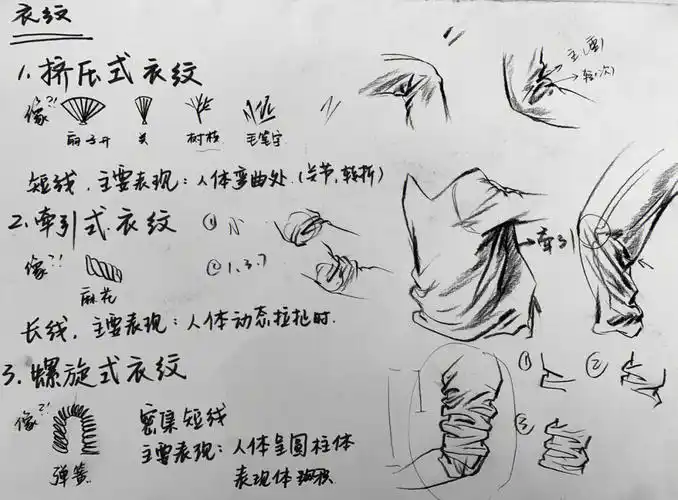 衣纹
1. 挤压式衣纹
像?!
扇子开 关 树枝 毛笔字
主(重)
轻(次)
短线，主要表现：人体弯曲处.(关节，转折)
2. 牵引式衣纹 ① N
像?! ② 1. 3. 7
麻花
牵引
长线，主要表现：人体动态拉扯时.
3. 螺旋式衣纹
① ②
像?! 密集短线
③
主要表现：人体呈圆柱体
弹簧 表现体积